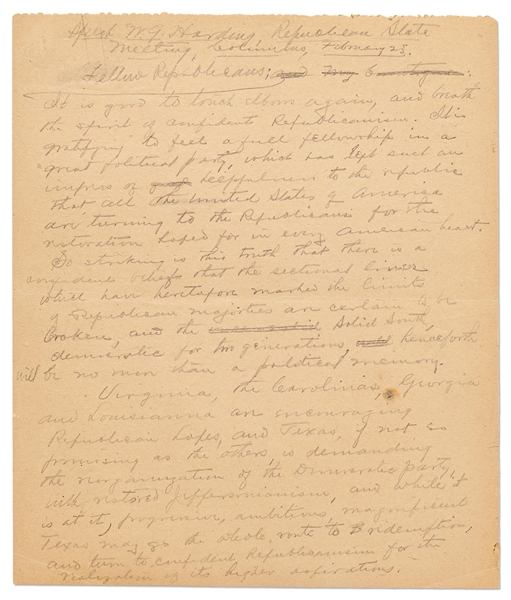 Speech W. G. Harding, Republican State
Meeting, Columbus, February 23.
Fellow Republicans; and my
It is good to touch elbows again, and breath
the spirit of confident Republicanism. It is
gratifying to feel a full fellowship in a
great political party, which has left such an
impress of helpfulness to the republic
that all the United States of America
are turning to the Republicans for the
restoration hoped for in every American heart.
So striking is this truth that there is a
confident belief that the sectional lines
which have heretofore marked the limits
of Republican majorities are certain to be
broken, and the Solid South,
democratic for two generations, henceforth
will be no more than a political memory.
Virginia, the Carolinas, Georgia
and Louisianna are encouraging
Republican hopes, and Texas, if not so
promising as the others, is demanding
the reorganization of the Democratic party,
with restored Jeffersonianism, and while it
is at it, progressive, ambitious, magnificent
Texas may go the whole route to redemption,
and turn to confident Republicanism for the
realization of its higher aspirations.